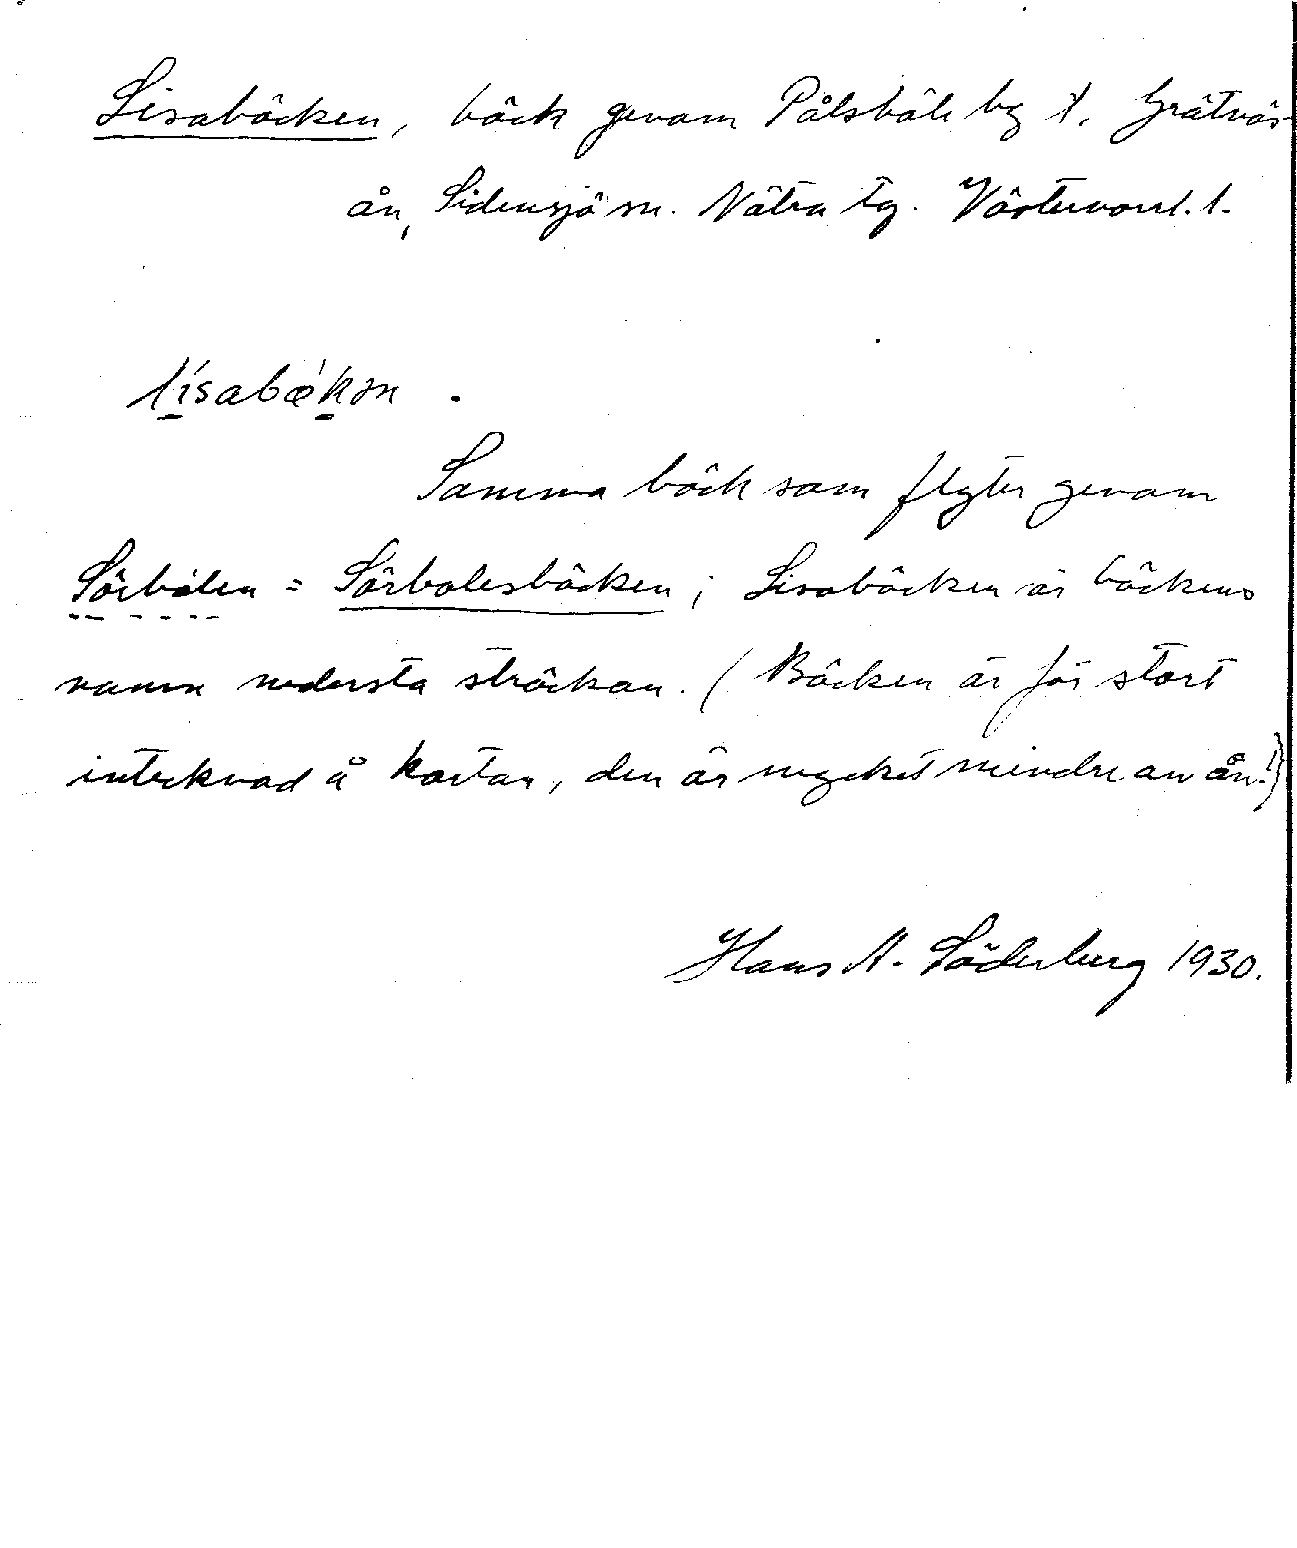 Lisabäcken, bäck genom Pålsböle by t. Grätnäs-
ån, Sidensjö sn. Nätra tg. Västernorrl. l.
lísabækən.
Samma bäck som flyter genom
Sörbölen = Sörbölesbäcken; Lisabäcken är bäckens
namn nedersta sträckan. (Bäcken är för stort
intecknad å kartan, den är mycket mindre än ån!)
Hans A. Söderberg 1930.